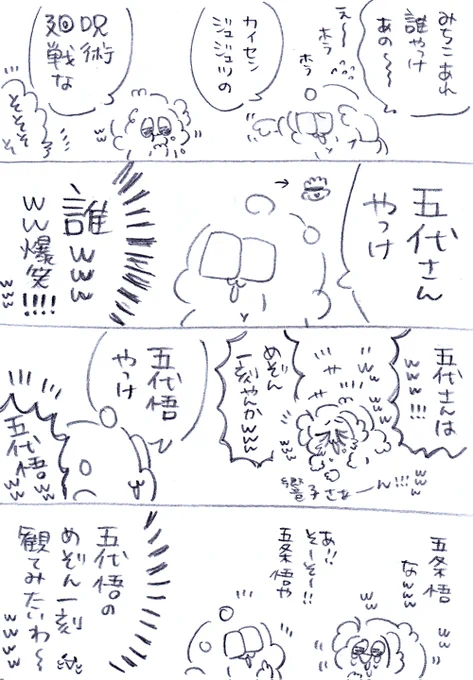 みちこあれ
誰やっけ
あの〜〜
え〜〜
ホラ
ホラ
カイセン
ジュジュツの
呪術
廻戦な
そ
そそそ
そ
五代さん
やっけ
誰www
ww爆笑!!!!
www
五代さんは
www!!!
www
www
ww
めぞん
一刻やんかwww
www
響子さぁーん!!!
www
五代悟
やっけ
五代悟
ww
ww
五条悟
なwww
ww
ww
あ!!
そーそー!!
五条悟や
五代悟の
めぞん一刻
観てみたいわ〜
wwww